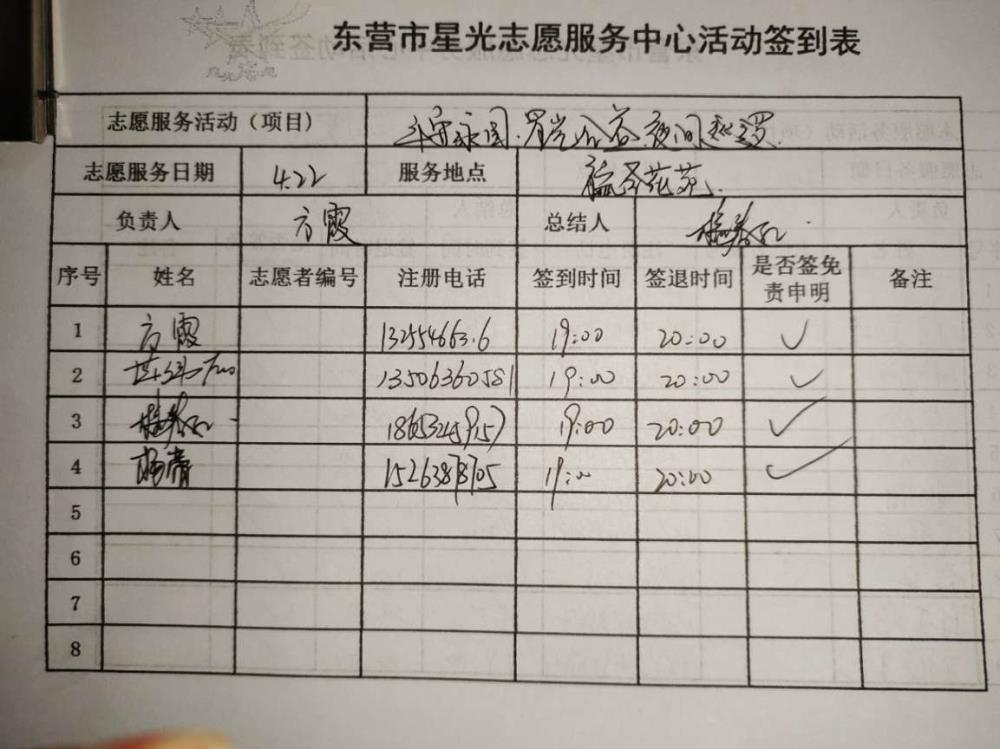 东营市星光志愿服务中心活动签到表
志愿服务活动（项目） 夜间巡逻
志愿服务日期 4.22 服务地点 花苑
负责人 方霞 总结人
序号 姓名 志愿者编号 注册电话 签到时间 签退时间 是否签免责申明 备注
1 方霞 132554663.6 19:00 20:00 ✓
2 13506360581 19:00 20:00 ✓
3 19:00 20:00 ✓
4 杨青 19:00 20:00 ✓
5
6
7
8